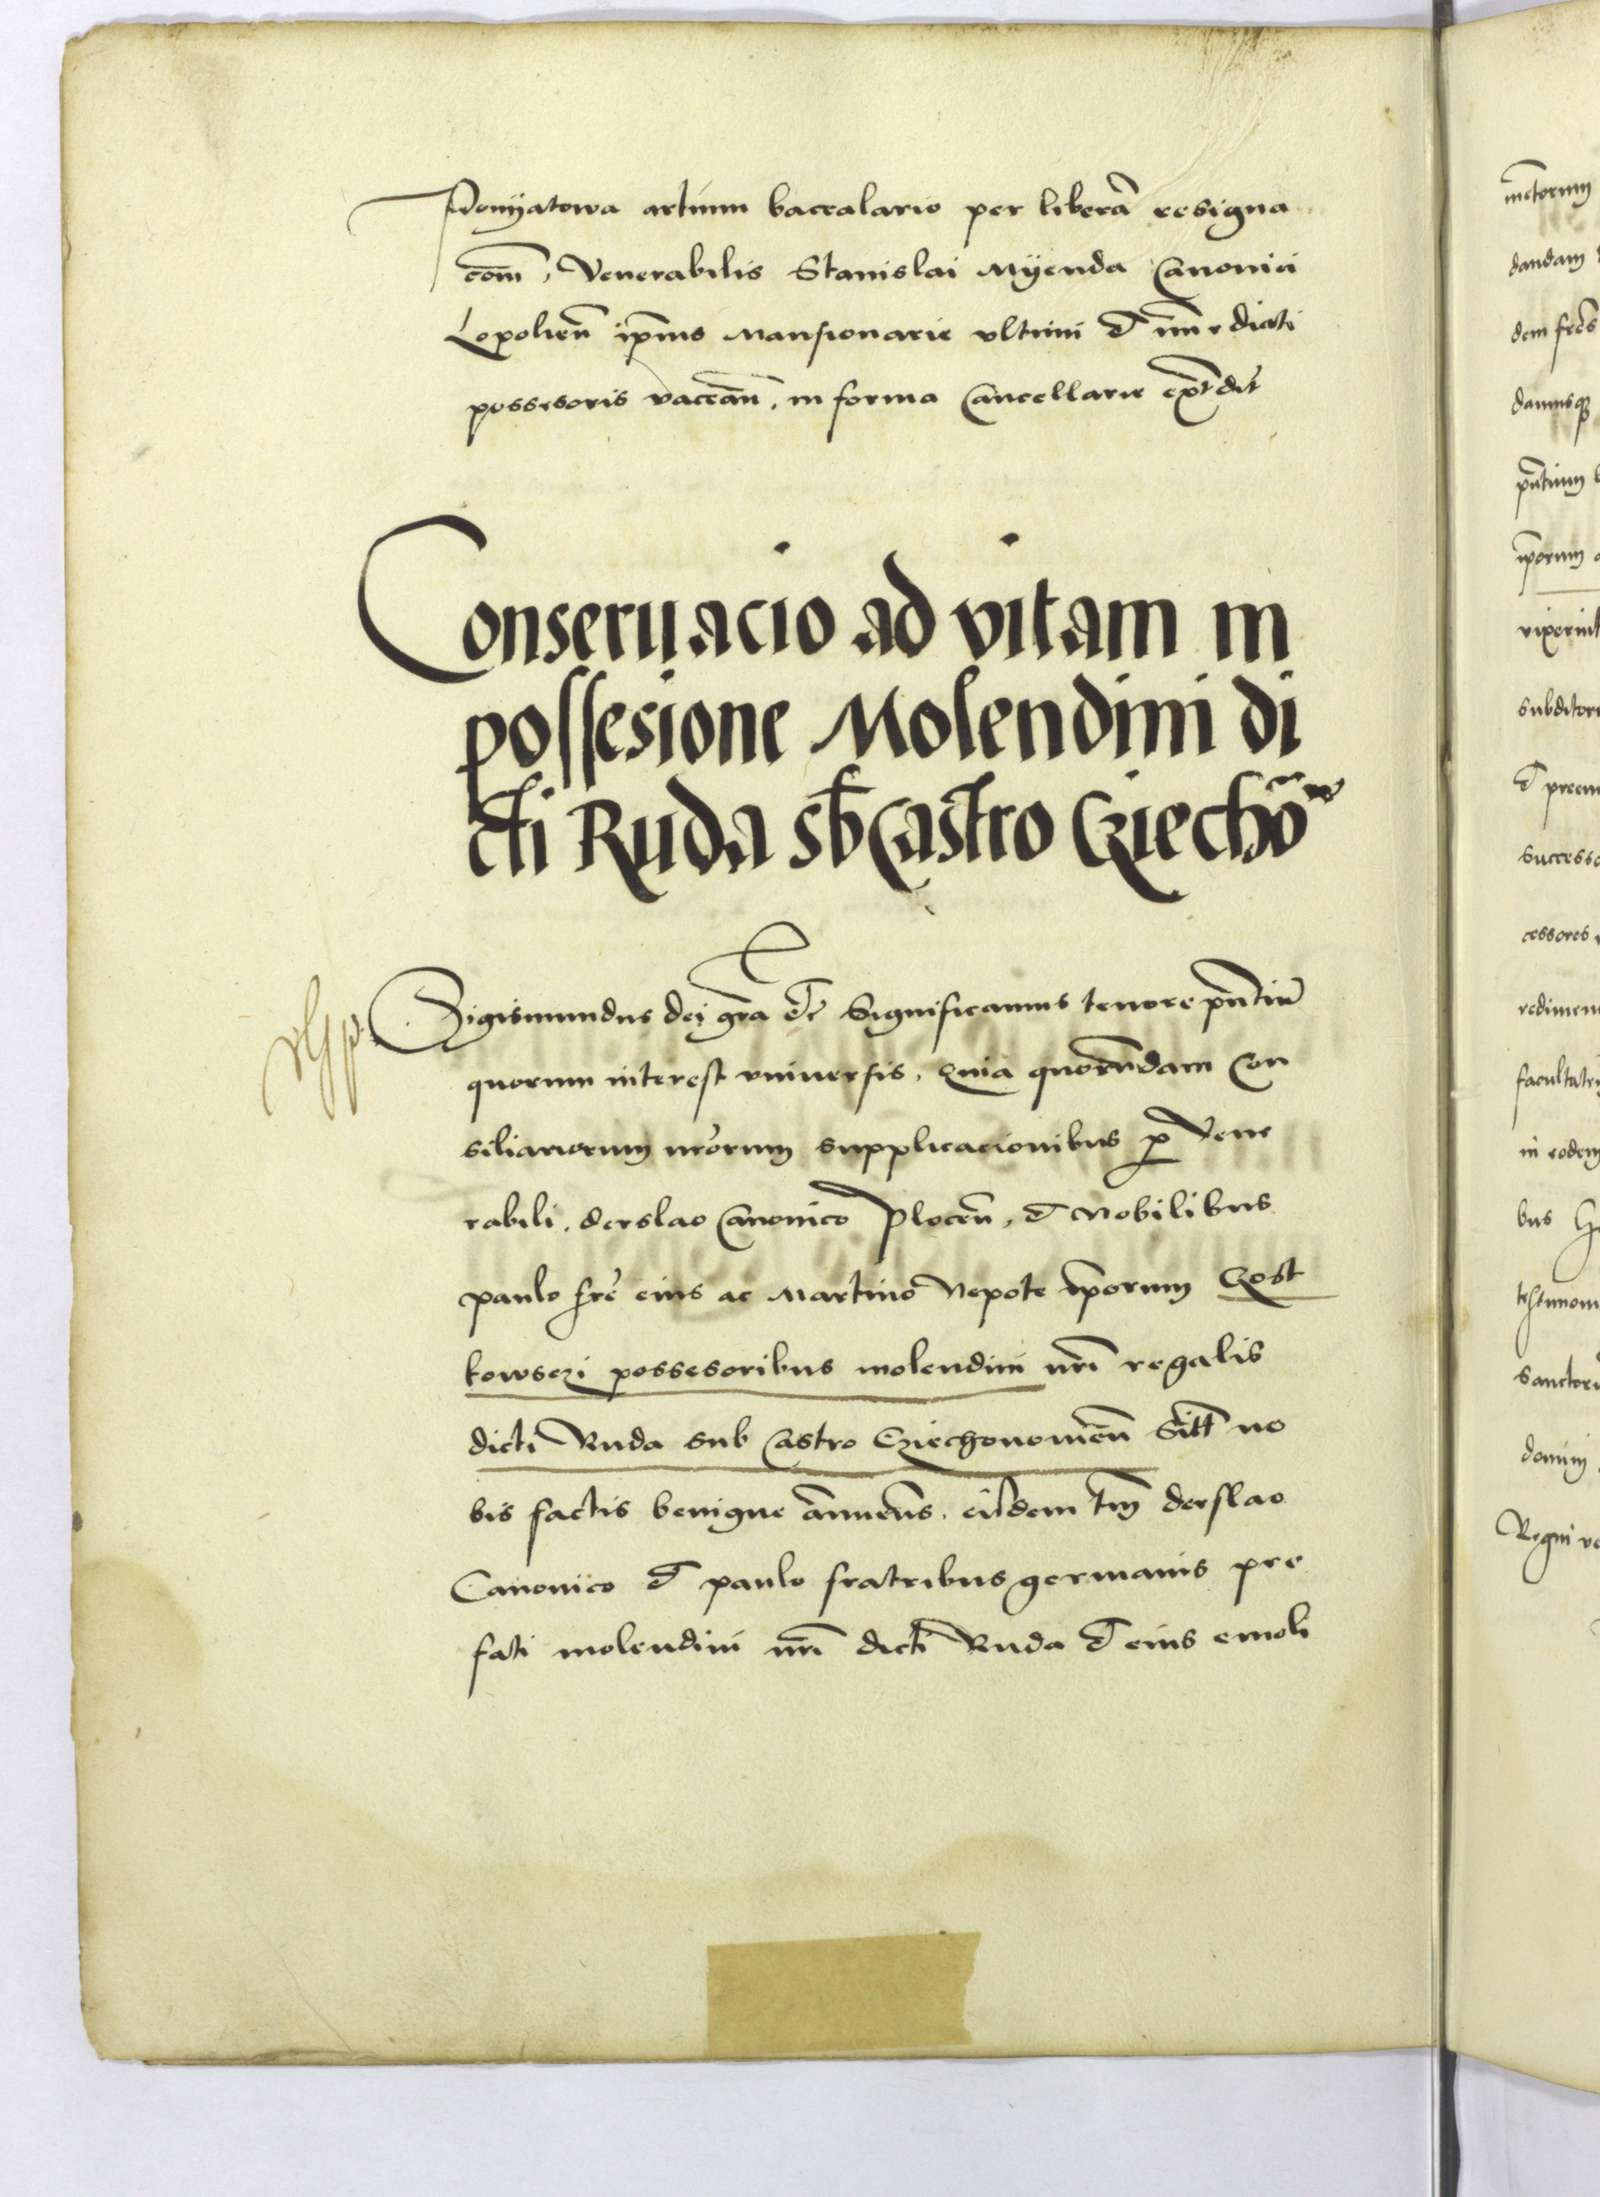 Ponyatowa artium baccalario per liberã resigna
com̃, Venerabilis Stanislai Myenda Canonici
Lopolien̄ ip̄ius Mansionarie ultimi et imediati
possesoris vacan̄. in forma Cancellarie
Conseruacio ad vitam in
possesione Molendini di
cti Ruda sb̄ Castro Cziechõ
Sigismundus dei gr̄a etc Significamus tenore pn̄tiũ
quorum interest vniuersis, Quia quorũndam Con
siliariorum nr̄orum supplicacionibus p Vene
rabili. derslao Canonico Plocen̄, et Nobilibus
paulo fr̄e eius ac Martino Nepote ip̄orum Gost
kowsczi possesoribus molendini nr̄i regalis
dicti Ruda sub Castro Cziechonouien̄ Sitt̄ no
bis factis benigne ann̄uen̄s. eisdem tm̄ derslao
Canonico et paulo fratribus germanis pre
fati molendini nr̄i dicti Ruda et eius emoli
dandam
subditor
et preem
successo
cessores
redimen
in eodem
bus
testimoni
domini
Regni